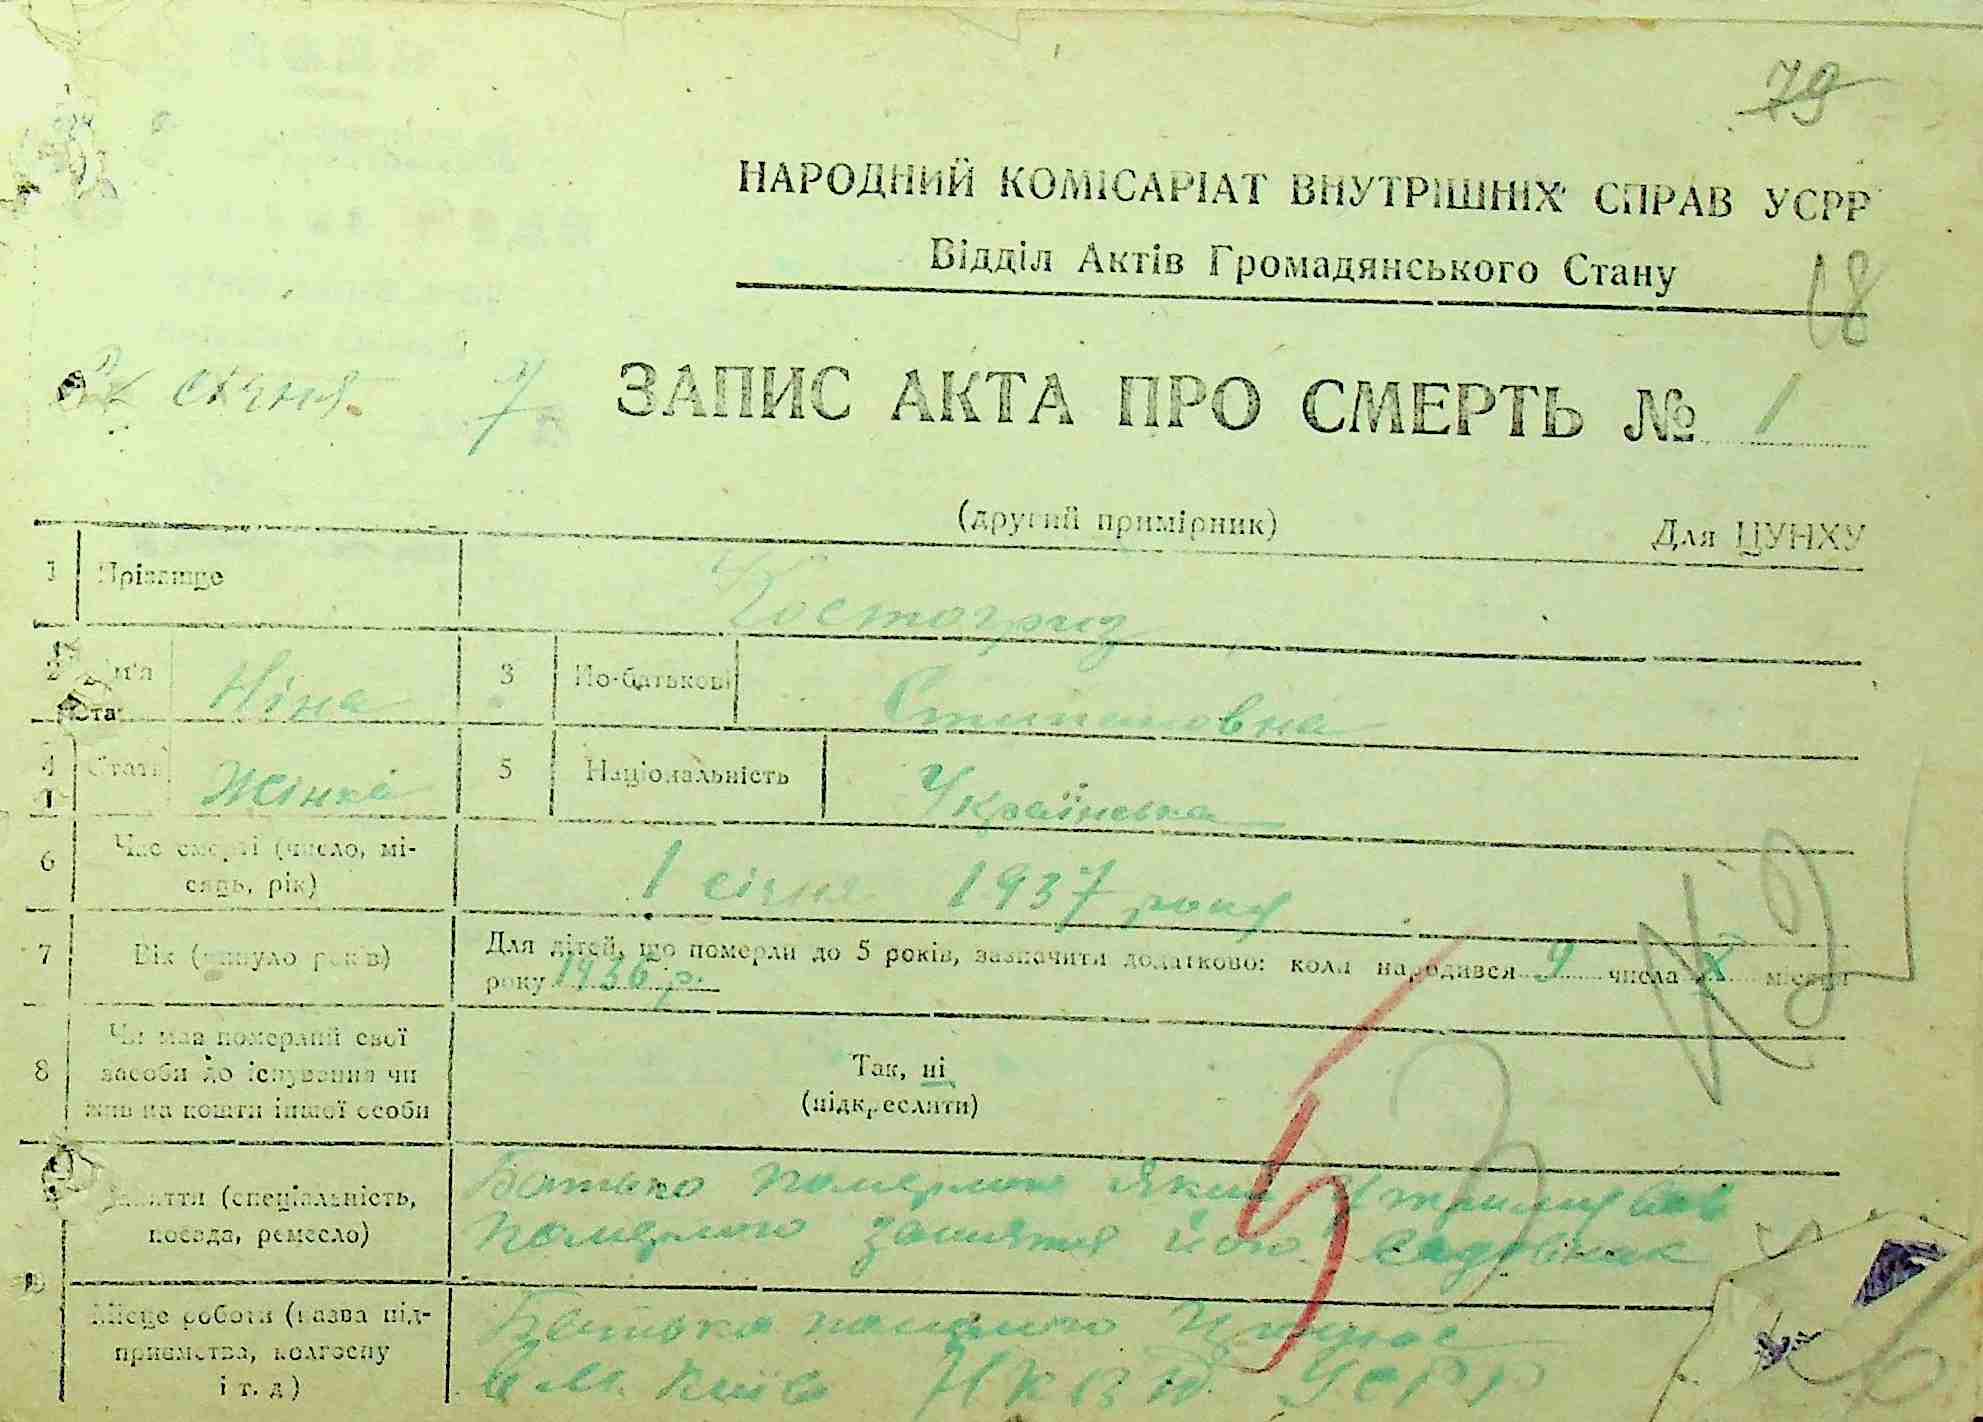 79
НАРОДНИЙ КОМІСАРІАТ ВНУТРІШНІХ СПРАВ УСРР
Відділ Актів Громадянського Стану
18
січня 7
ЗАПИС АКТА ПРО СМЕРТЬ № 1
(другий примірник) Для ЦУНХУ
1 Прізвище Костогриз
2 Ім'я Ніна 3 По-батькові Стипановна
4 Стать Жінка 5 Національність Українська
6 Час смерті (число, мі-
сяць, рік) 1 січня 1937 року
7 Вік (минуло років) Для дітей, що померли до 5 років, зазначити додатково: коли народився 9 числа X місяця
року 1936 р.
8 Чи мав померлий свої
засоби до існування чи
жив на кошти іншої особи
Так, ні
(підкреслити)
Заняття (спеціальність,
посада, ремесло)
Батько померлого який утримував
померлого заняття його садовник
10 Місце роботи (назва під-
приємства, колгоспу
і т. д)
Батько померлого працює
в м. Київ НКВД УСРР